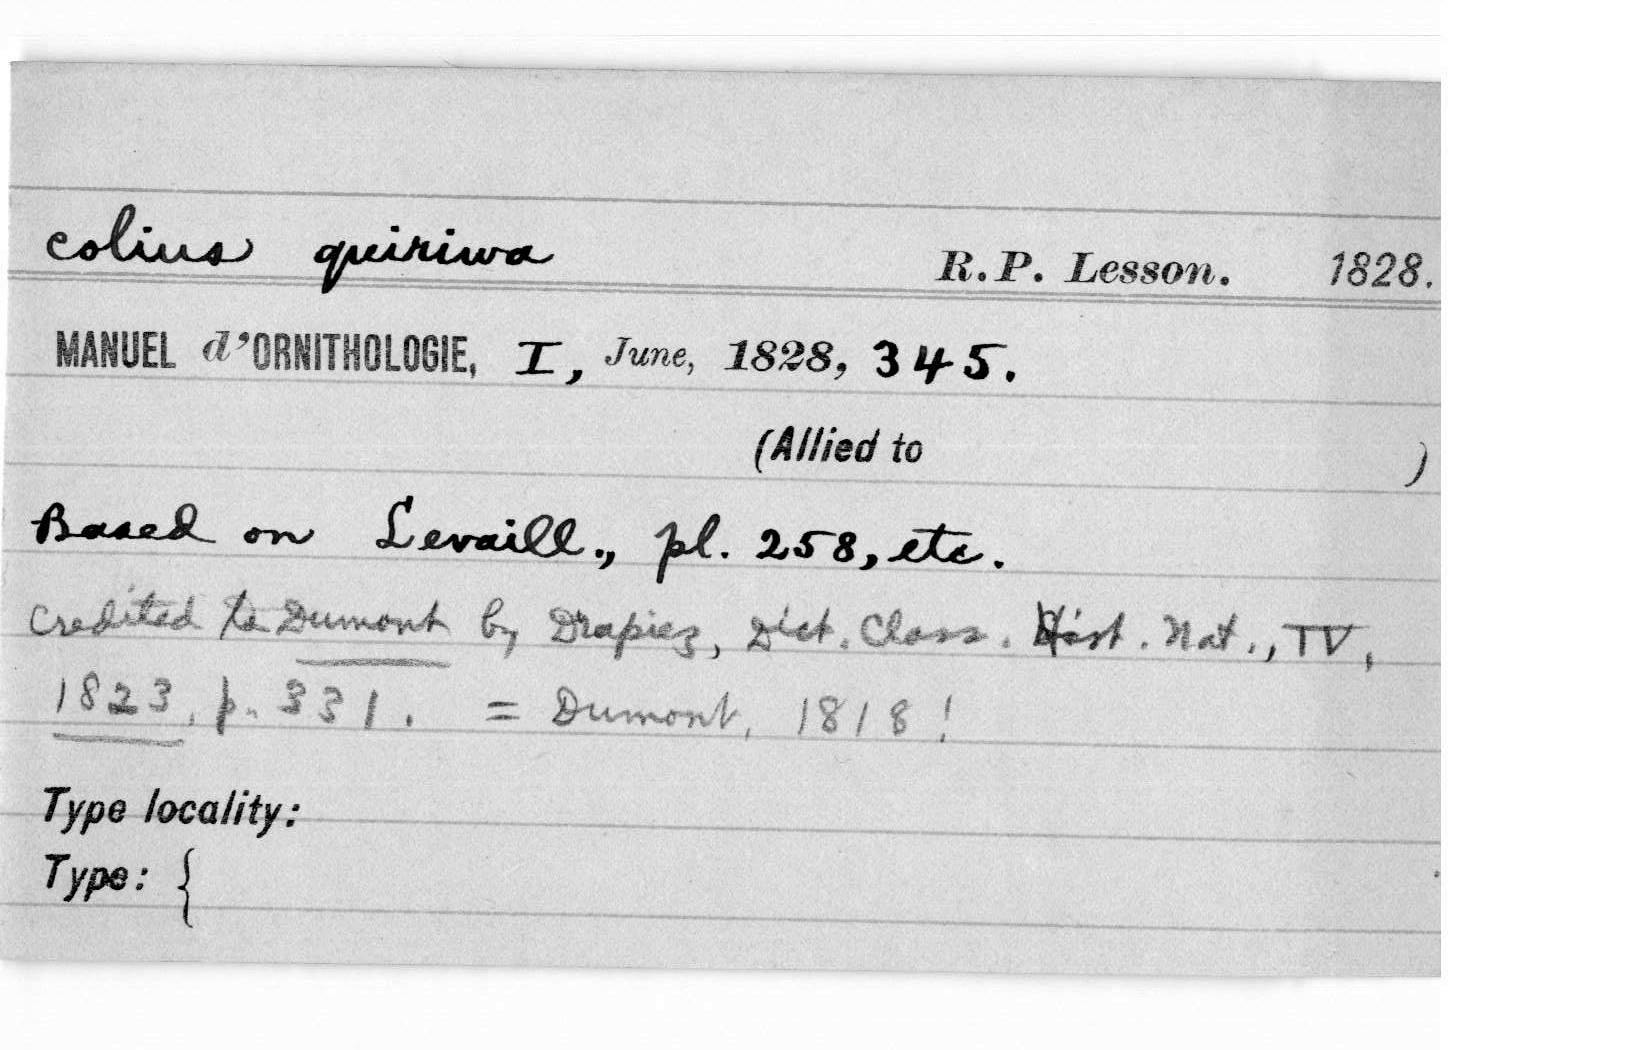 colius quiriwa R.P. Lesson. 1828.
MANUEL d'ORNITHOLOGIE, I, June, 1828, 345.
(Allied to )
Based on Levaill., pl. 258, etc.
credited to Dumont by Drapiez, Dict. Class. Hist. Nat., IV,
1823, p. 331. = Dumont, 1818!
Type locality:
Type: {